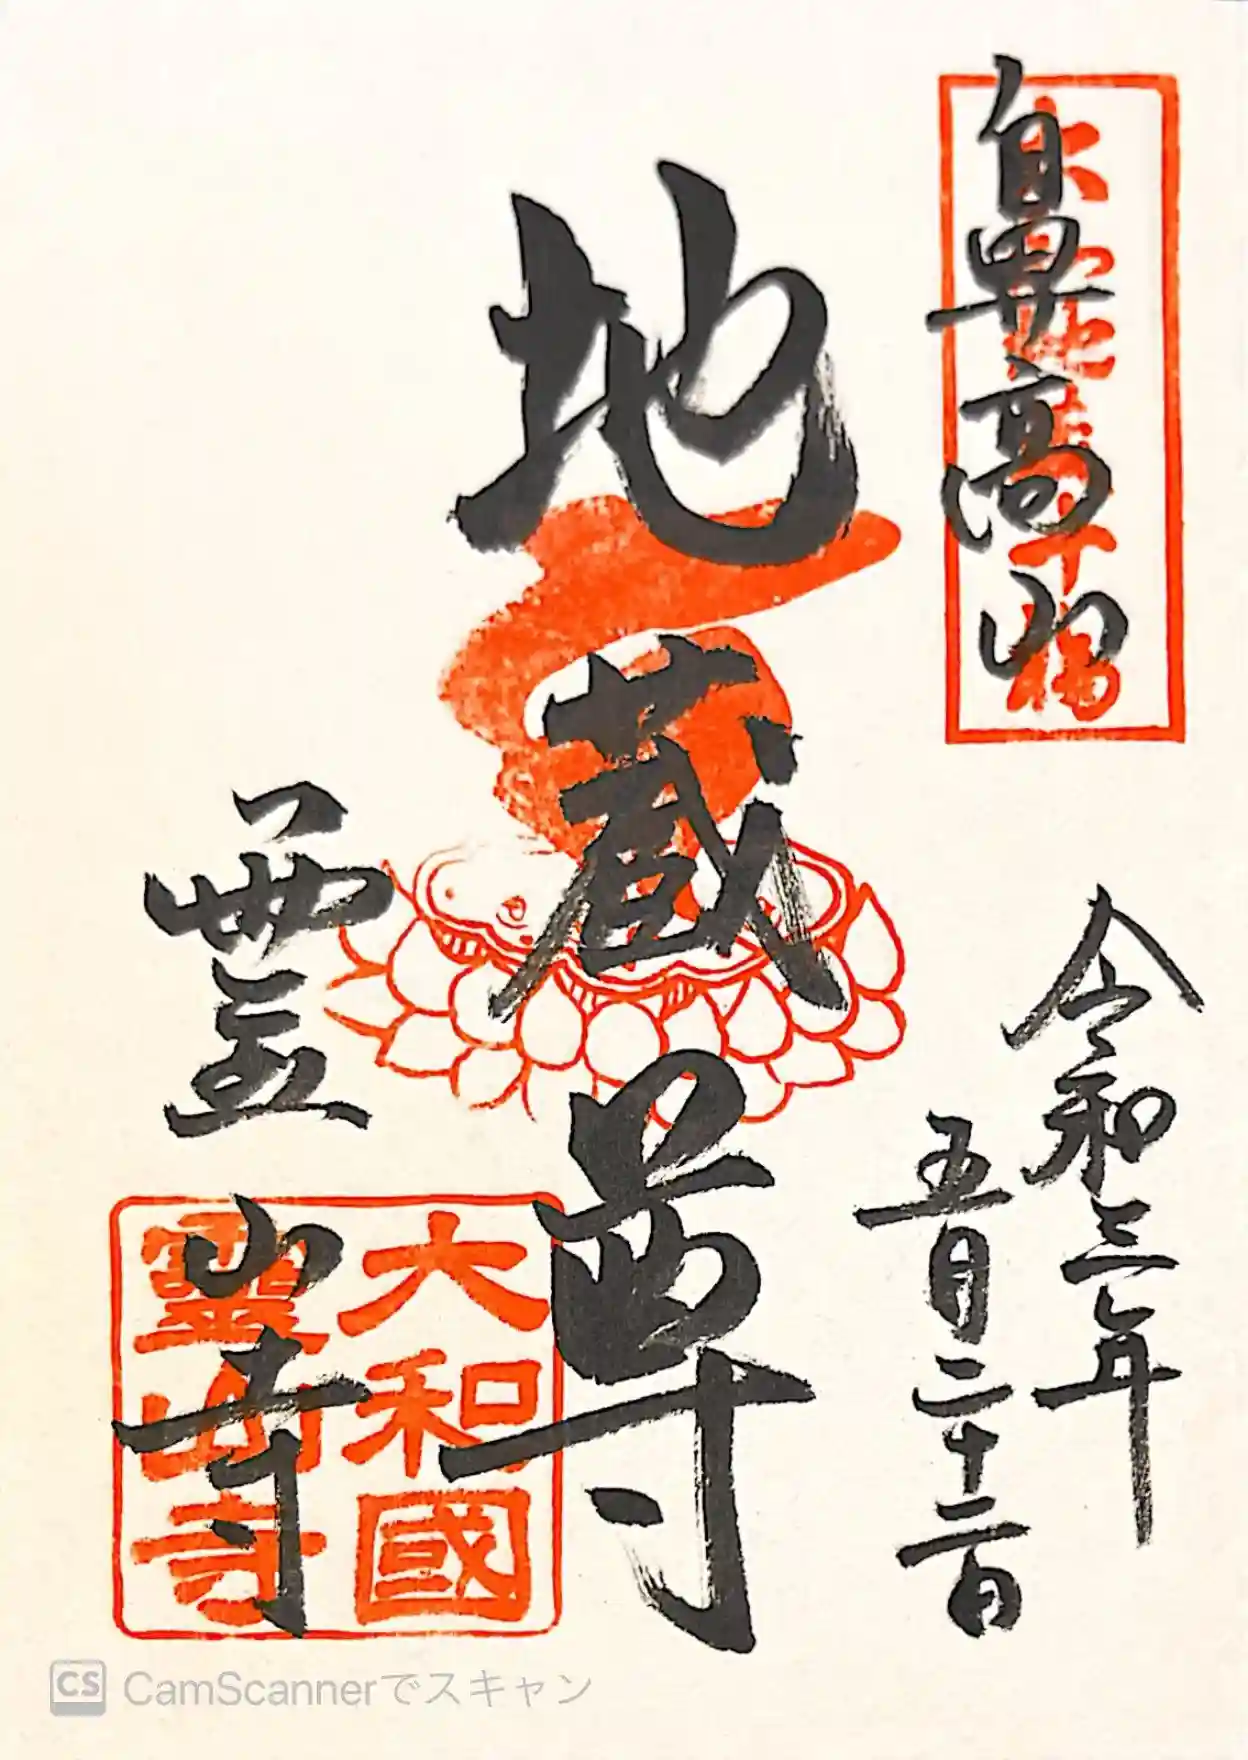 大和地蔵十福
鼻高山
令和三年
五月二十二日
地蔵尊
霊山寺
大和國
靈山寺
CS CamScannerでスキャン